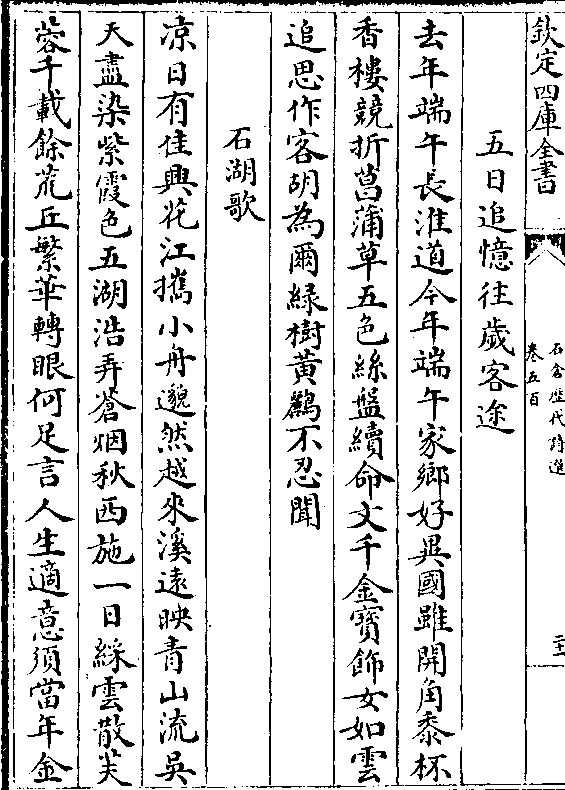 欽定四庫全書
石倉歷代詩選
卷五百
二十一
五日追憶往歲客途
去年端午長淮道今年端午家鄉好異國雖開角黍杯
香樓競折菖蒲草五色絲盤續命文千金寶飾女如雲
追思作客胡為爾緑樹黄鸝不忍聞
石湖歌
凉日有佳興花江攜小舟邈然越來溪遠映青山流吳
天盡染紫霞色五湖浩弄蒼烟秋西施一日綵雲散芙
蓉千載餘荒丘繁華轉眼何足言人生適意須當年金